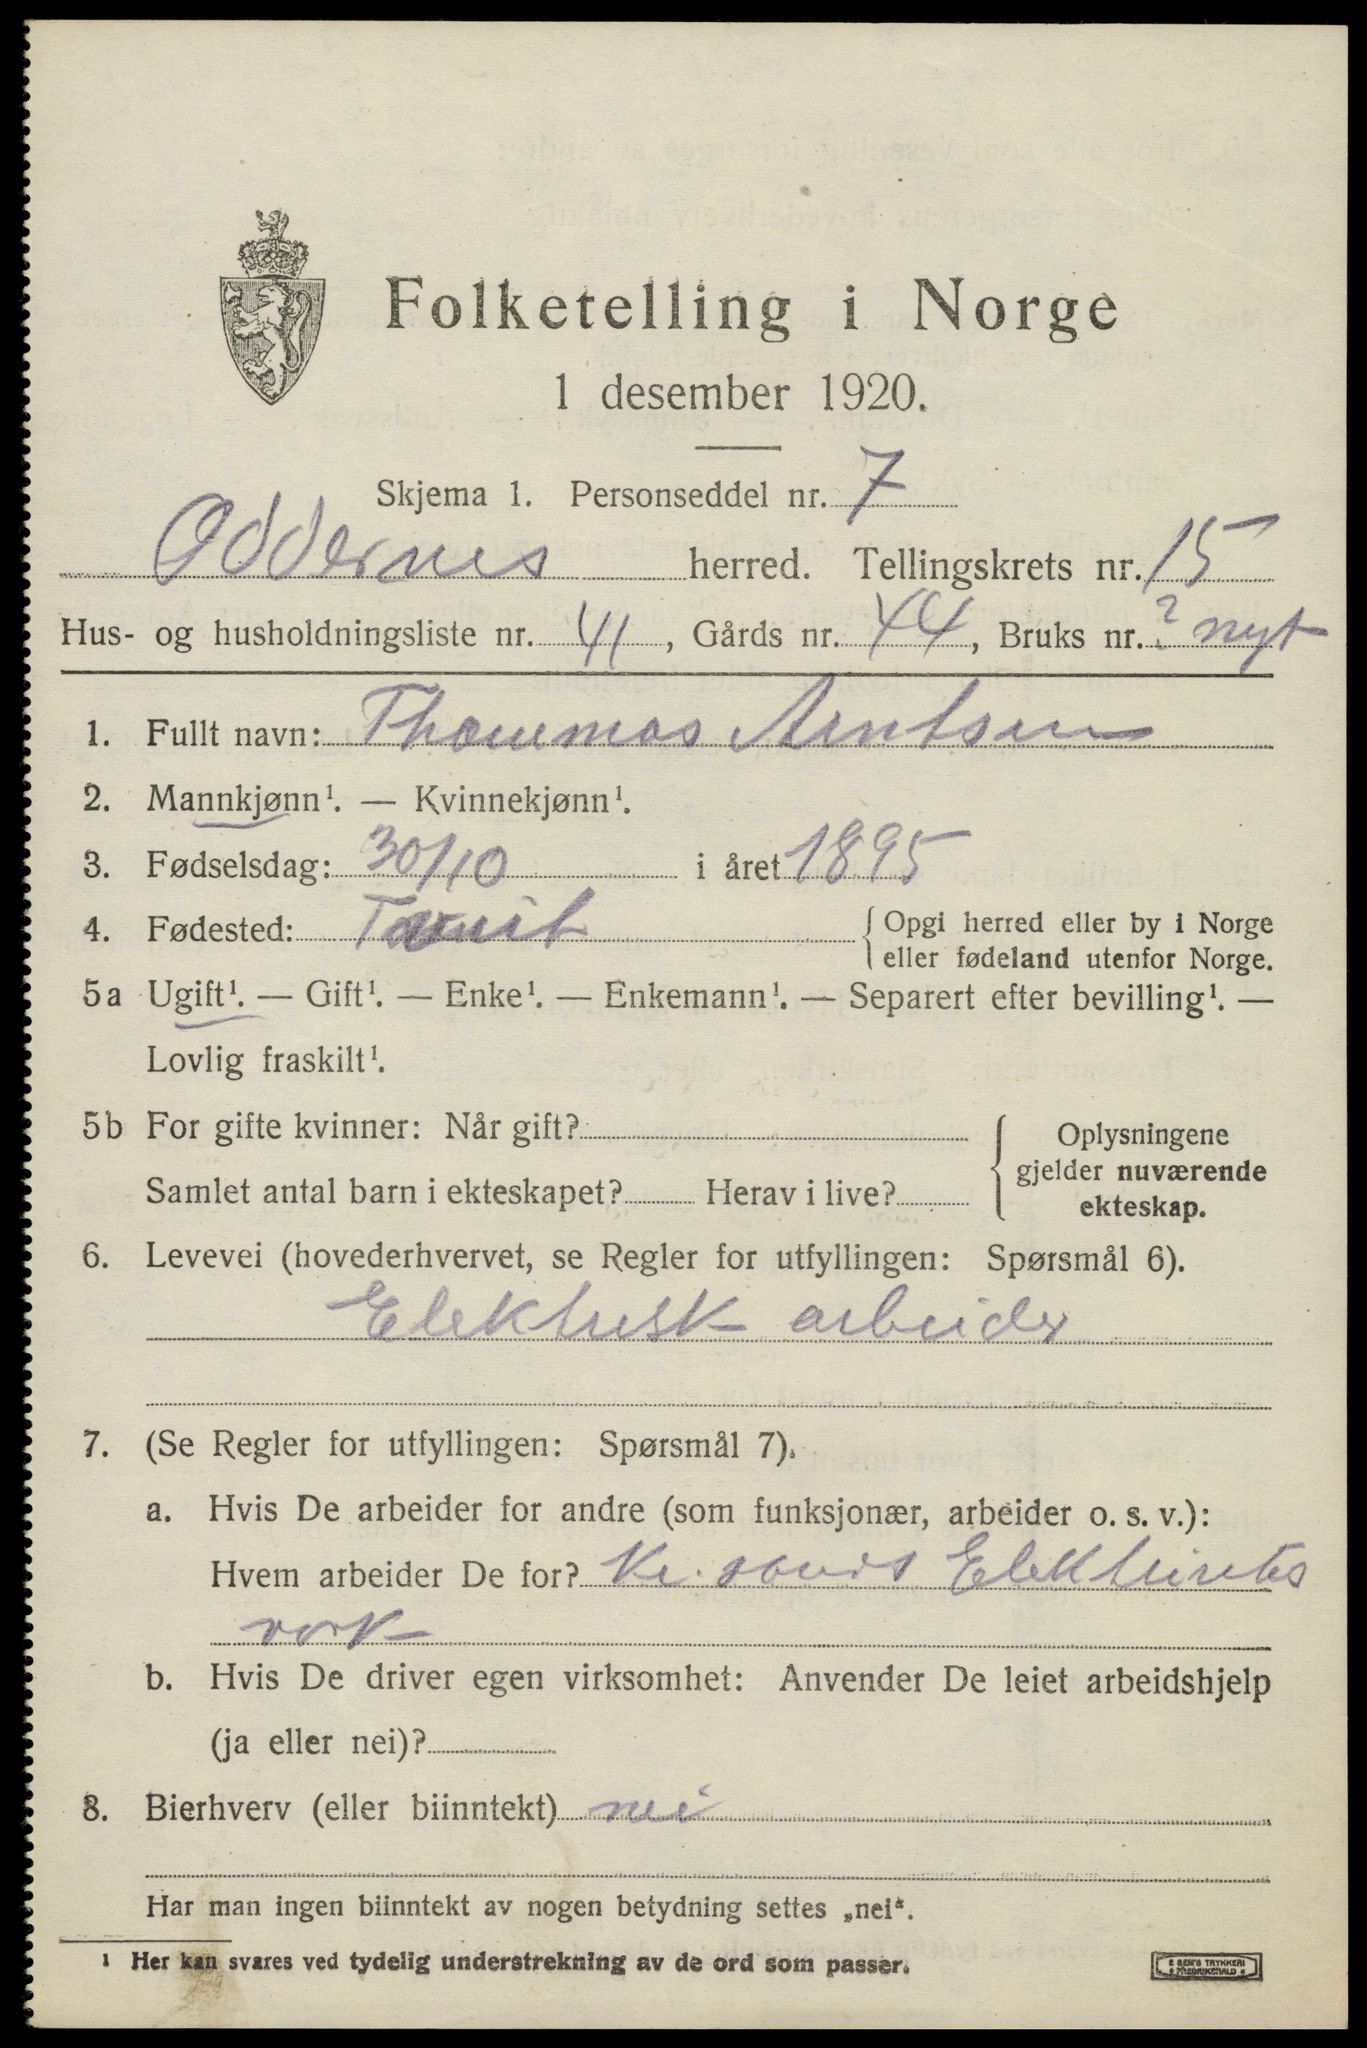 Folketelling i Norge
1 desember 1920.
Skjema 1. Personseddel nr. 7
Oddernes herred. Tellingskrets nr. 15
Hus- og husholdningsliste nr. 41, Gårds nr. 44, Bruks nr. ? nyt
1. Fullt navn: Thommas Arntsen
2. Mannkjønn¹. — Kvinnekjønn¹.
3. Fødselsdag: 30/10 i året 1895
4. Fødested: Tveit { Opgi herred eller by i Norge
eller fødeland utenfor Norge.
5a Ugift¹. — Gift¹. — Enke¹. — Enkemann¹. — Separert efter bevilling¹. —
Lovlig fraskilt¹.
5b For gifte kvinner: Når gift?
Samlet antal barn i ekteskapet? Herav i live?
{ Oplysningene
gjelder nuværende
ekteskap.
6. Levevei (hovederhvervet, se Regler for utfyllingen: Spørsmål 6).
Elektrisk arbeider
7. (Se Regler for utfyllingen: Spørsmål 7).
a. Hvis De arbeider for andre (som funksjonær, arbeider o. s. v.):
Hvem arbeider De for? Kr. sands Elektricitets
verk
b. Hvis De driver egen virksomhet: Anvender De leiet arbeidshjelp
(ja eller nei)?
8. Bierhverv (eller biinntekt) nei
Har man ingen biinntekt av nogen betydning settes „nei“.
¹ Her kan svares ved tydelig understrekning av de ord som passer.